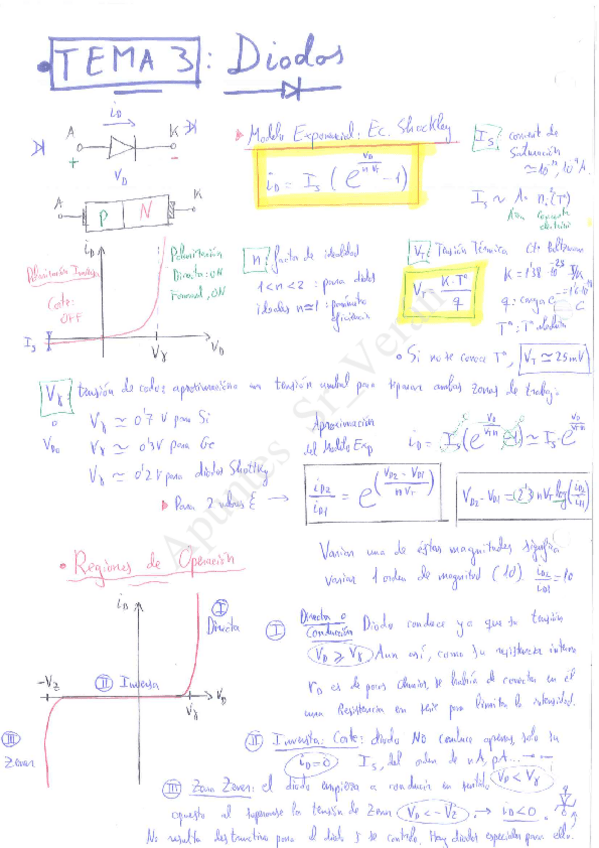 • TEMA 3: Diodos
iD
A K
+ -
VD
A P N K
▸ Modelo Exponencial: Ec. Shockley
iD = IS (e^(VD/nVT) - 1)
IS: corriente de
saturación
IS ~ A · ni²(Tª)
iD
Polarización Inversa
Corte:
OFF
Polarización
Directa: ON
Forward, ON
IS
Vγ
VD
n: factor de idealidad
1<n<2 : para diodos
ideales n≃1: parámetro
eficiencia
VT: Tensión Térmica
VT = K·Tª/q
Cte Boltzmann
K = 1'38·10^-23 J/K
q: carga e
C
Tª: Tª absoluta
• Si no se conoce Tª, VT ≃ 25mV
Vγ: tensión de codo: aproximación a un tensión umbral para separar ambas zonas de trabajo
Vγ ≃ 0'7 V para Si
Vγ ≃ 0'3V para Ge
Vγ ≃ 0'2V para diodos Shottky
Aproximación
del Modelo Exp
iD = IS(e^(VD/VT·n) - 1) ≃ IS·e^(VD/VT·n)
▸ Para 2 valores →
iD2/iD1 = e^((VD2 - VD1)/nVT)
VD2 - VD1 = (2'3) nVT log(iD2/iD1)
Variar una de éstas magnitudes significa
variar 1 orden de magnitud (10). iD2/iD1 = 10
• Regiones de Operación
iD
I
Directa
II Inversa
-VZ
Vγ
VD
III
Zener
I Directa o Conducción Diodo conduce ya que su tensión
VD ≥ Vγ Aun así, como su resistencia interna
rD es de pocos Ohmios, se habrá de conectar en él
una Resistencia en serie para limitar la intensidad.
II Inversa: Corte: diodo NO conduce apenas, solo su
iD≃0 IS, del orden de nA, pA... VD < Vγ
III Zona Zener: el diodo empieza a conducir en sentido
opuesto al superarse la tensión de Zener VD < -VZ → iD<0.
No resulta destructivo para el diodo si se controla. Hay diodos especiales para ello.
Apuntes Sr_Veran